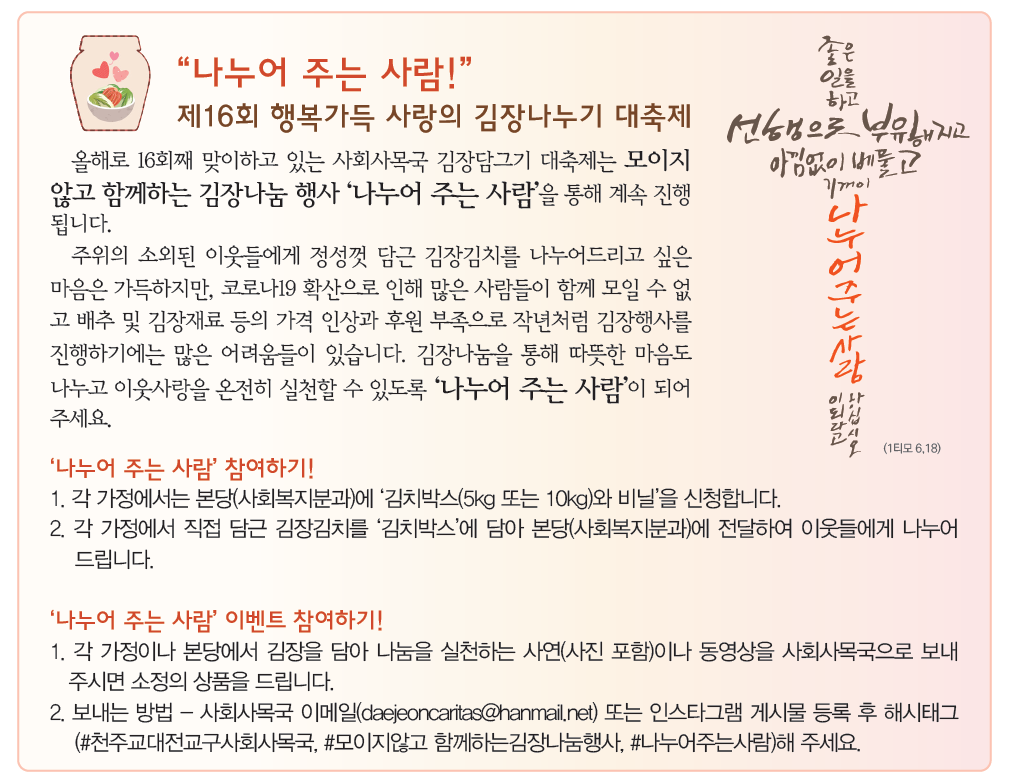 “나누어 주는 사람!”
제16회 행복가득 사랑의 김장나누기 대축제
올해로 16회째 맞이하고 있는 사회사목국 김장담그기 대축제는 모이지
않고 함께하는 김장나눔 행사 ‘나누어 주는 사람’을 통해 계속 진행
됩니다.
주위의 소외된 이웃들에게 정성껏 담근 김장김치를 나누어드리고 싶은
마음은 가득하지만, 코로나19 확산으로 인해 많은 사람들이 함께 모일 수 없
고 배추 및 김장재료 등의 가격 인상과 후원 부족으로 작년처럼 김장행사를
진행하기에는 많은 어려움들이 있습니다. 김장나눔을 통해 따뜻한 마음도
나누고 이웃사랑을 온전히 실천할 수 있도록 ‘나누어 주는 사람’이 되어
주세요.
좋은
일을
하고
선행으로 부유해지고
아낌없이 베풀고
기꺼이
나누어주는사람
이되라고
하십시오
(1티모 6,18)
‘나누어 주는 사람’ 참여하기!
1. 각 가정에서는 본당(사회복지분과)에 ‘김치박스(5kg 또는 10kg)와 비닐’을 신청합니다.
2. 각 가정에서 직접 담근 김장김치를 ‘김치박스’에 담아 본당(사회복지분과)에 전달하여 이웃들에게 나누어
드립니다.
‘나누어 주는 사람’ 이벤트 참여하기!
1. 각 가정이나 본당에서 김장을 담아 나눔을 실천하는 사연(사진 포함)이나 동영상을 사회사목국으로 보내
주시면 소정의 상품을 드립니다.
2. 보내는 방법 – 사회사목국 이메일(daejeoncaritas@hanmail.net) 또는 인스타그램 게시물 등록 후 해시태그
(#천주교대전교구사회사목국, #모이지않고 함께하는김장나눔행사, #나누어주는사람)해 주세요.